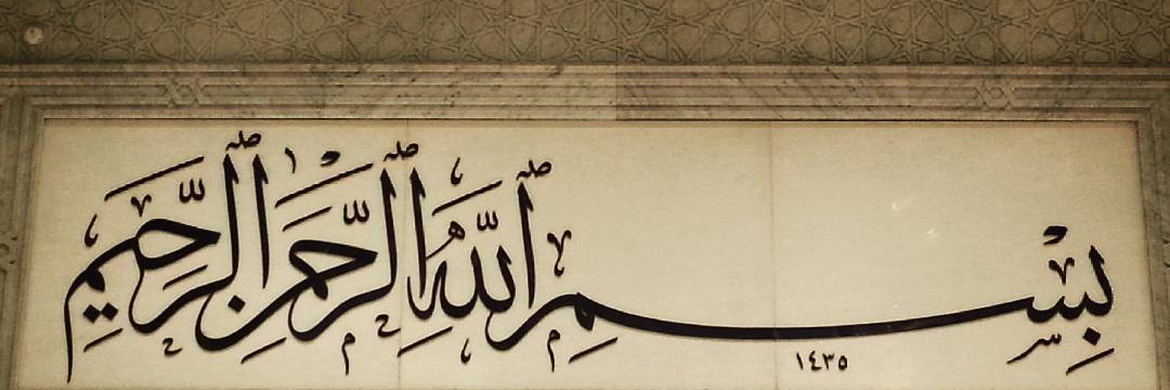 بِسْمِ ٱللَّهِ ٱلرَّحْمَٰنِ ٱلرَّحِيمِ
١٤٣٥